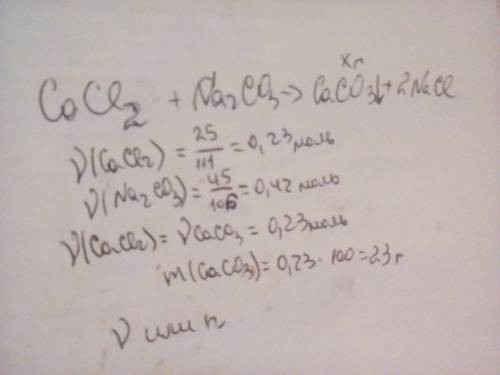 x г
CaCl₂ + Na₂CO₃ → CaCO₃↓ + 2NaCl
ν(CaCl₂) = 25/111 = 0,23 моль
ν(Na₂CO₃) = 45/106 = 0,42 моль
ν(CaCl₂) = νCaCO₃ = 0,23 моль
m(CaCO₃) = 0,23 · 100 = 23 г
ν или n